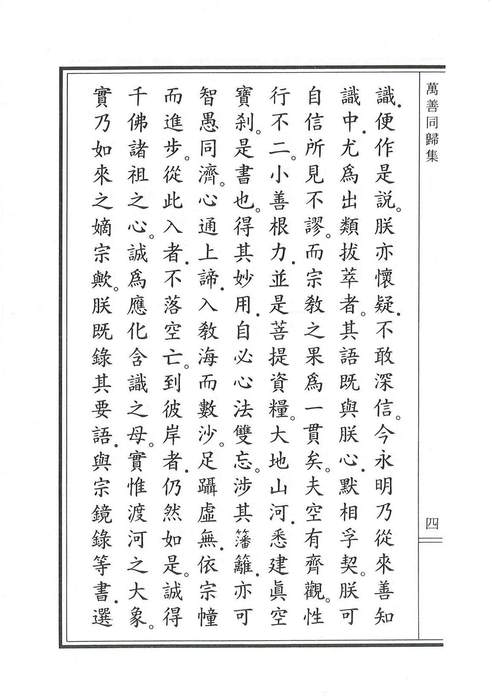 萬善同歸集
四
識。便作是說。朕亦懷疑。不敢深信。今永明乃從來善知
識中。尤為出類拔萃者。其語既與朕心。默相孚契。朕可
自信所見不謬。而宗教之果為一貫矣。夫空有齊觀。性
行不二。小善根力。並是菩提資糧。大地山河。悉建眞空
寶剎。是書也。得其妙用。自必心法雙忘。涉其籓籬。亦可
智愚同濟。心通上諦。入教海而數沙。足躡虛無。依宗幢
而進步。從此入者。不落空亡。到彼岸者。仍然如是。誠得
千佛諸祖之心。誠為應化含識之母。實惟渡河之大象。
實乃如來之嫡宗歟。朕既錄其要語。與宗鏡錄等書。選